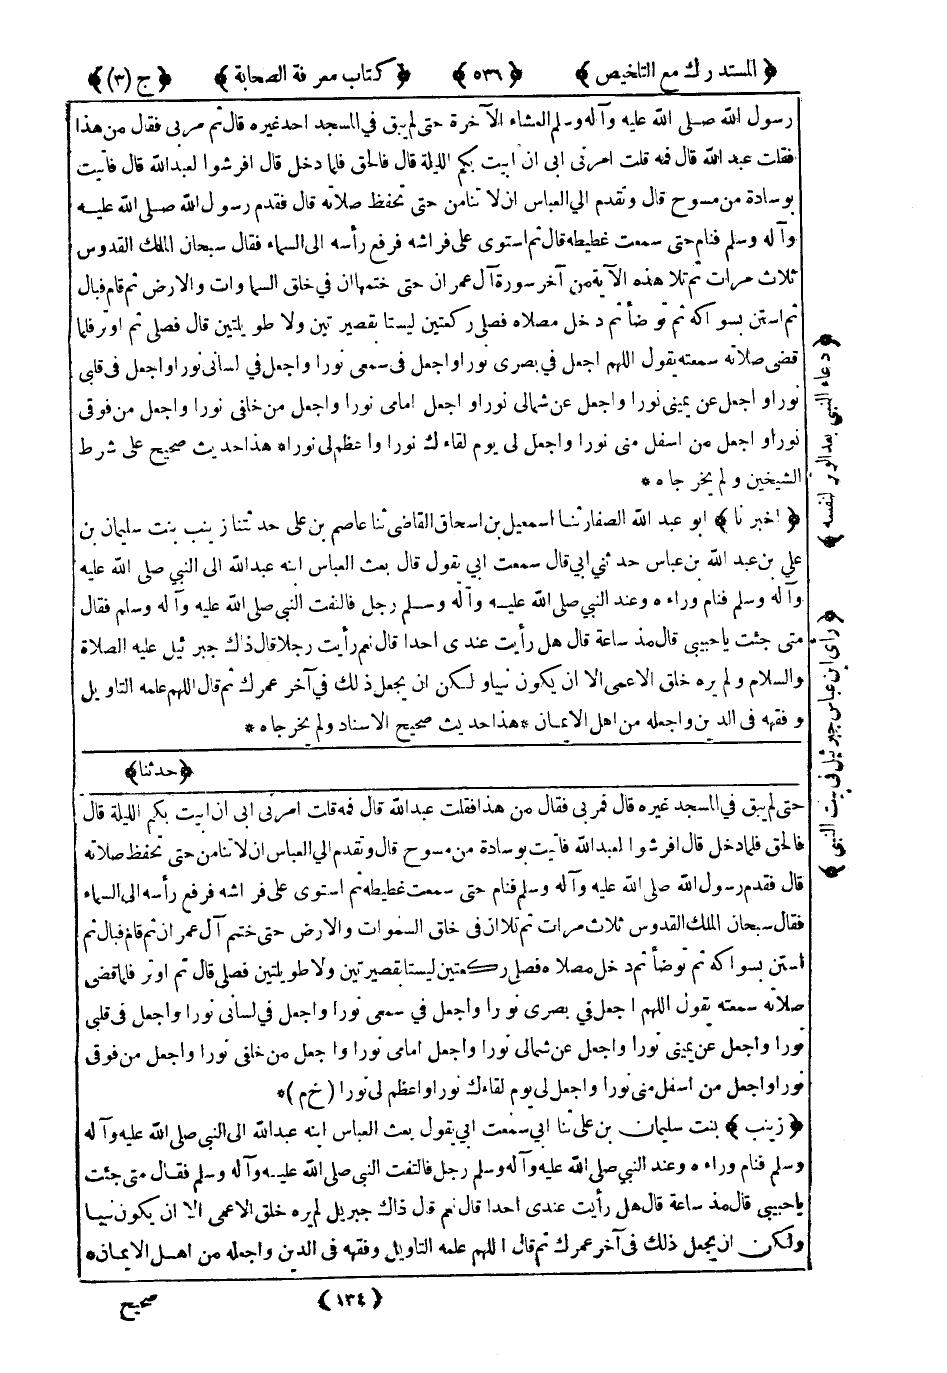 ﴿ المستدرك مع التلخيص ﴾ ﴿ ٥٣٦ ﴾ ﴿ كتاب معرفة الصحابة ﴾ ﴿ ج (٣) ﴾
رسول الله صلى الله عليه وآله وسلم العشاء الآخرة حتى لم يبق في المسجد احد غيره قال ثم مر بى فقال من هذا
فقلت عبد الله قال فمه قلت امرنى ابى ان ابيت بكم الليلة قال فالحق فلما دخل قال افرشوا لعبد الله قال فأتيت
بوسادة من مسوح قال وتقدم الي العباس ان لا تنامن حتى تحفظ صلاته قال فقدم رسول الله صلى الله عليه
وآله وسلم فنام حتى سمعت غطيطه قال ثم استوى على فراشه فرفع رأسه الى السماء فقال سبحان الملك القدوس
ثلاث مرات ثم تلا هذه الآية من آخر سورة آل عمران حتى ختمها ان في خلق السماوات والارض ثم قام فبال
ثم استن بسواكه ثم توضأ ثم دخل مصلاه فصلى ركعتين ليستا بقصيرتين ولا طويلتين قال فصلى ثم اوتر فلما
قضى صلاته سمعته يقول اللهم اجعل في بصرى نورا واجعل فى سمعى نورا واجعل في لسانى نورا واجعل في قلبى
نورا واجعل عن يمينى نورا واجعل عن شمالى نورا واجعل امامى نورا واجعل من خلفى نورا واجعل من فوقى
نورا واجعل من اسفل منى نورا واجعل لى يوم لقاءك نورا واعظم لى نورا* هذا حديث صحيح على شرط
الشيخين ولم يخرجاه *
﴿ اخبرنا ﴾ ابو عبد الله الصفار ثنا اسمعيل بن اسحاق القاضى ثنا عاصم بن على حدثتنا زينب بنت سليمان بن
علي بن عبد الله بن عباس حدثني ابي قال سمعت ابي يقول قال بعث العباس ابنه عبدالله الى النبي صلى الله عليه
وآله وسلم فنام وراءه وعند النبي صلى الله عليه وآله وسلم رجل فالتفت النبي صلى الله عليه وآله وسلم فقال
متى جئت ياحبيبى قال مذ ساعة قال هل رأيت عندى احدا قال نعم رأيت رجلا قال ذاك جبرئيل عليه الصلاة
والسلام ولم يره خلق الا عمى الا ان يكون نبيا ولكن ان يجعل ذلك في آخر عمرك ثم قال اللهم علمه التاويل
وفقهه فى الدين واجعله من اهل الايمان *هذا حديث صحيح الاسناد ولم يخرجاه *
﴿ حدثنا ﴾
حتى لم يبق في المسجد غيره قال فمر بى فقال من هذا فقلت عبدالله قال فمه قلت امرنى ابى ان ابيت بكم الليلة قال
فالحق فلما دخل قال افرشوا لعبد الله فأتيت بوسادة من مسوح قال وتقدم الي العباس ان لا تنامن حتى تحفظ صلاته
قال فقدم رسول الله صلى الله عليه وآله وسلم فنام حتى سمعت غطيطه ثم استوى على فراشه فرفع رأسه الى السماء
فقال سبحان الملك القدوس ثلاث مرات ثم تلا ان فى خلق السموات والارض حتى ختم آل عمران ثم قام فبال ثم
استن بسواكه ثم توضأ ثم دخل مصلاه فصلى ركعتين ليستا بقصيرتين ولا طويلتين فصلى قال ثم اوتر فلما قضى
صلاته سمعته يقول اللهم اجعل في بصرى نورا واجعل في سمعى نورا واجعل في لسانى نورا واجعل فى قلبى
نورا واجعل عن يمينى نورا واجعل عن شمالى نورا واجعل امامى نورا واجعل من خلفى نورا واجعل من فوقى
نورا واجعل من اسفل منى نورا واجعل لى يوم لقاءك نورا واعظم لى نورا (خ م)*
﴿ زينب ﴾ بنت سليمان بن على ثنا ابي سمعت ابي يقول بعث العباس ابنه عبدالله الى النبي صلى الله عليه وآله
وسلم فنام وراءه وعند النبي صلى الله عليه وآله وسلم رجل فالتفت النبي صلى الله عليه وآله وسلم فقال متى جئت
ياحبيبى قال مذ ساعة قال هل رأيت عندى احدا قال نعم قال ذاك جبريل لم يره خلق الا عمى الا ان يكون نبيا
ولكن ان يجعل ذلك فى آخر عمرك ثم قال اللهم علمه التاويل وفقهه فى الدين واجعله من اهل الايمان*
﴿ ١٣٤ ﴾ صحيح
﴿ دعاء النبي بعد الوتر لنفسه ﴾
﴿ رأى ابن عباس جبرئيل في بيت النبي ﴾